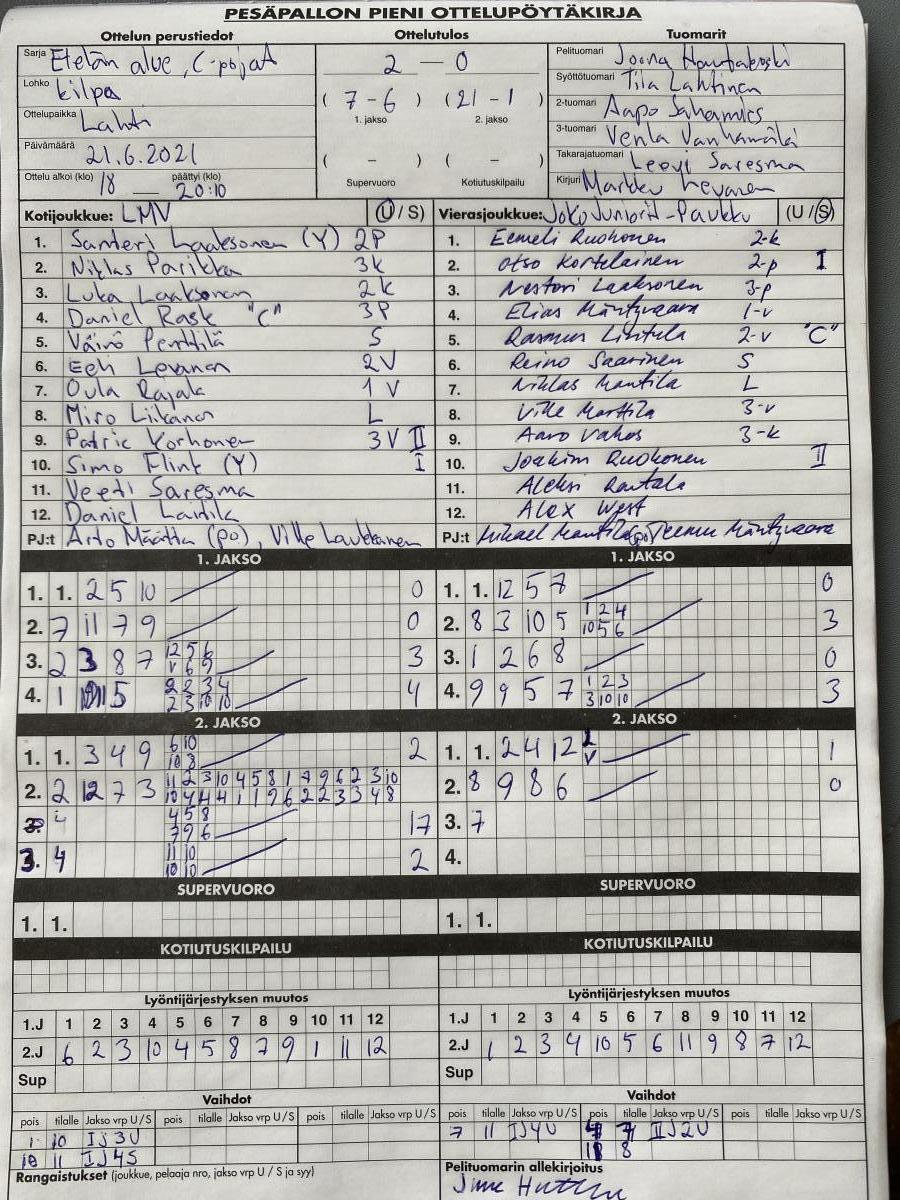 PESÄPALLON PIENI OTTELUPÖYTÄKIRJA
Ottelun perustiedot
Sarja Etelän alue, C-pojat
Lohko kilpa
Ottelupaikka Lahti
Päivämäärä 21.6.2021
Ottelu alkoi (klo) 18 — päättyi (klo) 20:10
Ottelutulos
2 — 0
(7 - 6) (21 - 1)
1. jakso 2. jakso
( - ) ( - )
Supervuoro Kotiutuskilpailu
Tuomarit
Pelituomari Joona
Syöttötuomari Tiia Lahtinen
2-tuomari Aapo
3-tuomari Venla Vanhamäki
Takarajatuomari Leevi Saresma
Kirjuri Markku Levanen
Kotijoukkue: LMV (U / S)
1. Santeri Laaksonen (Y) 2P
2. Niklas Parikka 3k
3. Luka Laaksonen 2k
4. Daniel Rask "C" 3P
5. Väinö Penttilä S
6. Eeli Levanen 2V
7. Oula Rajala 1 V
8. Miro Liikanen L
9. Patric Korhonen 3V II
10. Simo Flink (Y) I
11. Veeti Saresma
12. Daniel Laitila
PJ:t Arto Määttä (po), Ville Laukkanen
Vierasjoukkue: Joko Juniorit - Paukku (U / S)
1. Eemeli Ruohonen 2-k
2. Otso Kortelainen 2-p I
3. Nestori Laaksonen 3-p
4. Elias Mäntyvaara 1-v
5. Rasmus Lintula 2-v "C"
6. Reino Saarinen S
7. Niklas Mantila L
8. Ville Marttila 3-v
9. Aaro Vahos 3-k
10. Joakim Ruohonen II
11. Aleksi Rantala
12. Alex West
PJ:t Mikael Mantila (po) Teemu Mäntyvaara
1. JAKSO
1. 1. 2 5 10 0
2. 7 11 7 9 0
3. 2 3 8 7 12 5 6 3
v 6 9
4. 1 11 5 2 2 3 4 4
2 3 10 10
1. JAKSO
1. 1. 12 5 7 0
2. 8 3 10 5 1 2 4 3
10 5 6
3. 1 2 6 8 0
4. 9 9 5 7 1 2 3 3
3 10 10
2. JAKSO
1. 1. 3 4 9 6 10 2
10 8
2. 2 12 7 3 11 2 3 10 4 5 8 1 7 9 6 2 3 10
10 4 4 4 1 1 9 6 2 2 3 3 4 8
4 5 8 17
7 9 6
3. 4 11 10 2
10 10
2. JAKSO
1. 1. 2 4 12 1
v
2. 8 9 8 6 0
3. 7
4.
SUPERVUORO
1. 1.
SUPERVUORO
1. 1.
KOTIUTUSKILPAILU
KOTIUTUSKILPAILU
Lyöntijärjestyksen muutos
1.J 1 2 3 4 5 6 7 8 9 10 11 12
2.J 6 2 3 10 4 5 8 7 9 1 11 12
Sup
Lyöntijärjestyksen muutos
1.J 1 2 3 4 5 6 7 8 9 10 11 12
2.J 1 2 3 4 10 5 6 11 9 8 7 12
Sup
Vaihdot
pois tilalle Jakso vrp U / S pois tilalle Jakso vrp U / S pois tilalle Jakso vrp U / S
1 10 IJ3U
10 11 IJ4S
Vaihdot
pois tilalle Jakso vrp U / S pois tilalle Jakso vrp U / S pois tilalle Jakso vrp U / S
7 11 IJ4U 7 IIJ2U
8
Rangaistukset (joukkue, pelaaja nro, jakso vrp U / S ja syy)
Pelituomarin allekirjoitus